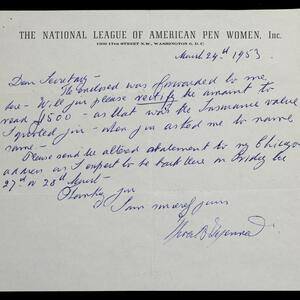 THE NATIONAL LEAGUE OF AMERICAN PEN WOMEN, Inc.
1300 17TH STREET N.W., WASHINGTON 6, D.C.
March 24th 1953
Dear Secretary -
The enclosed was forwarded to me
here - Will you please rectify the amount to
read $1500 - as that was the Insurance value
I quoted you - when you asked me to name
same -
Please send the altered statement to my Chicago
address as I expect to be back there on Friday the
27th or 28th March -
Thanking you
I am sincerely yours